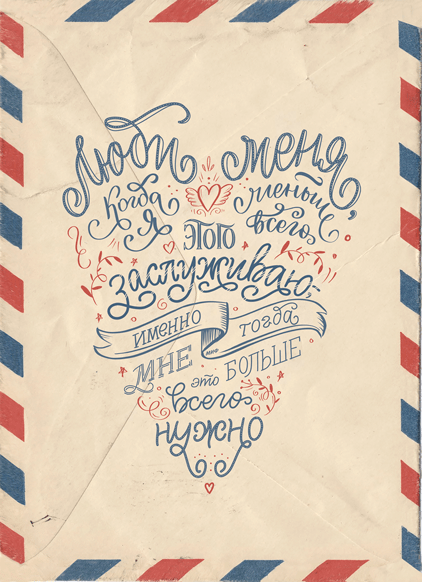 Люби меня,
Когда меньше
я этого всего
заслуживаю,
именно тогда
мне это больше
всего
нужно